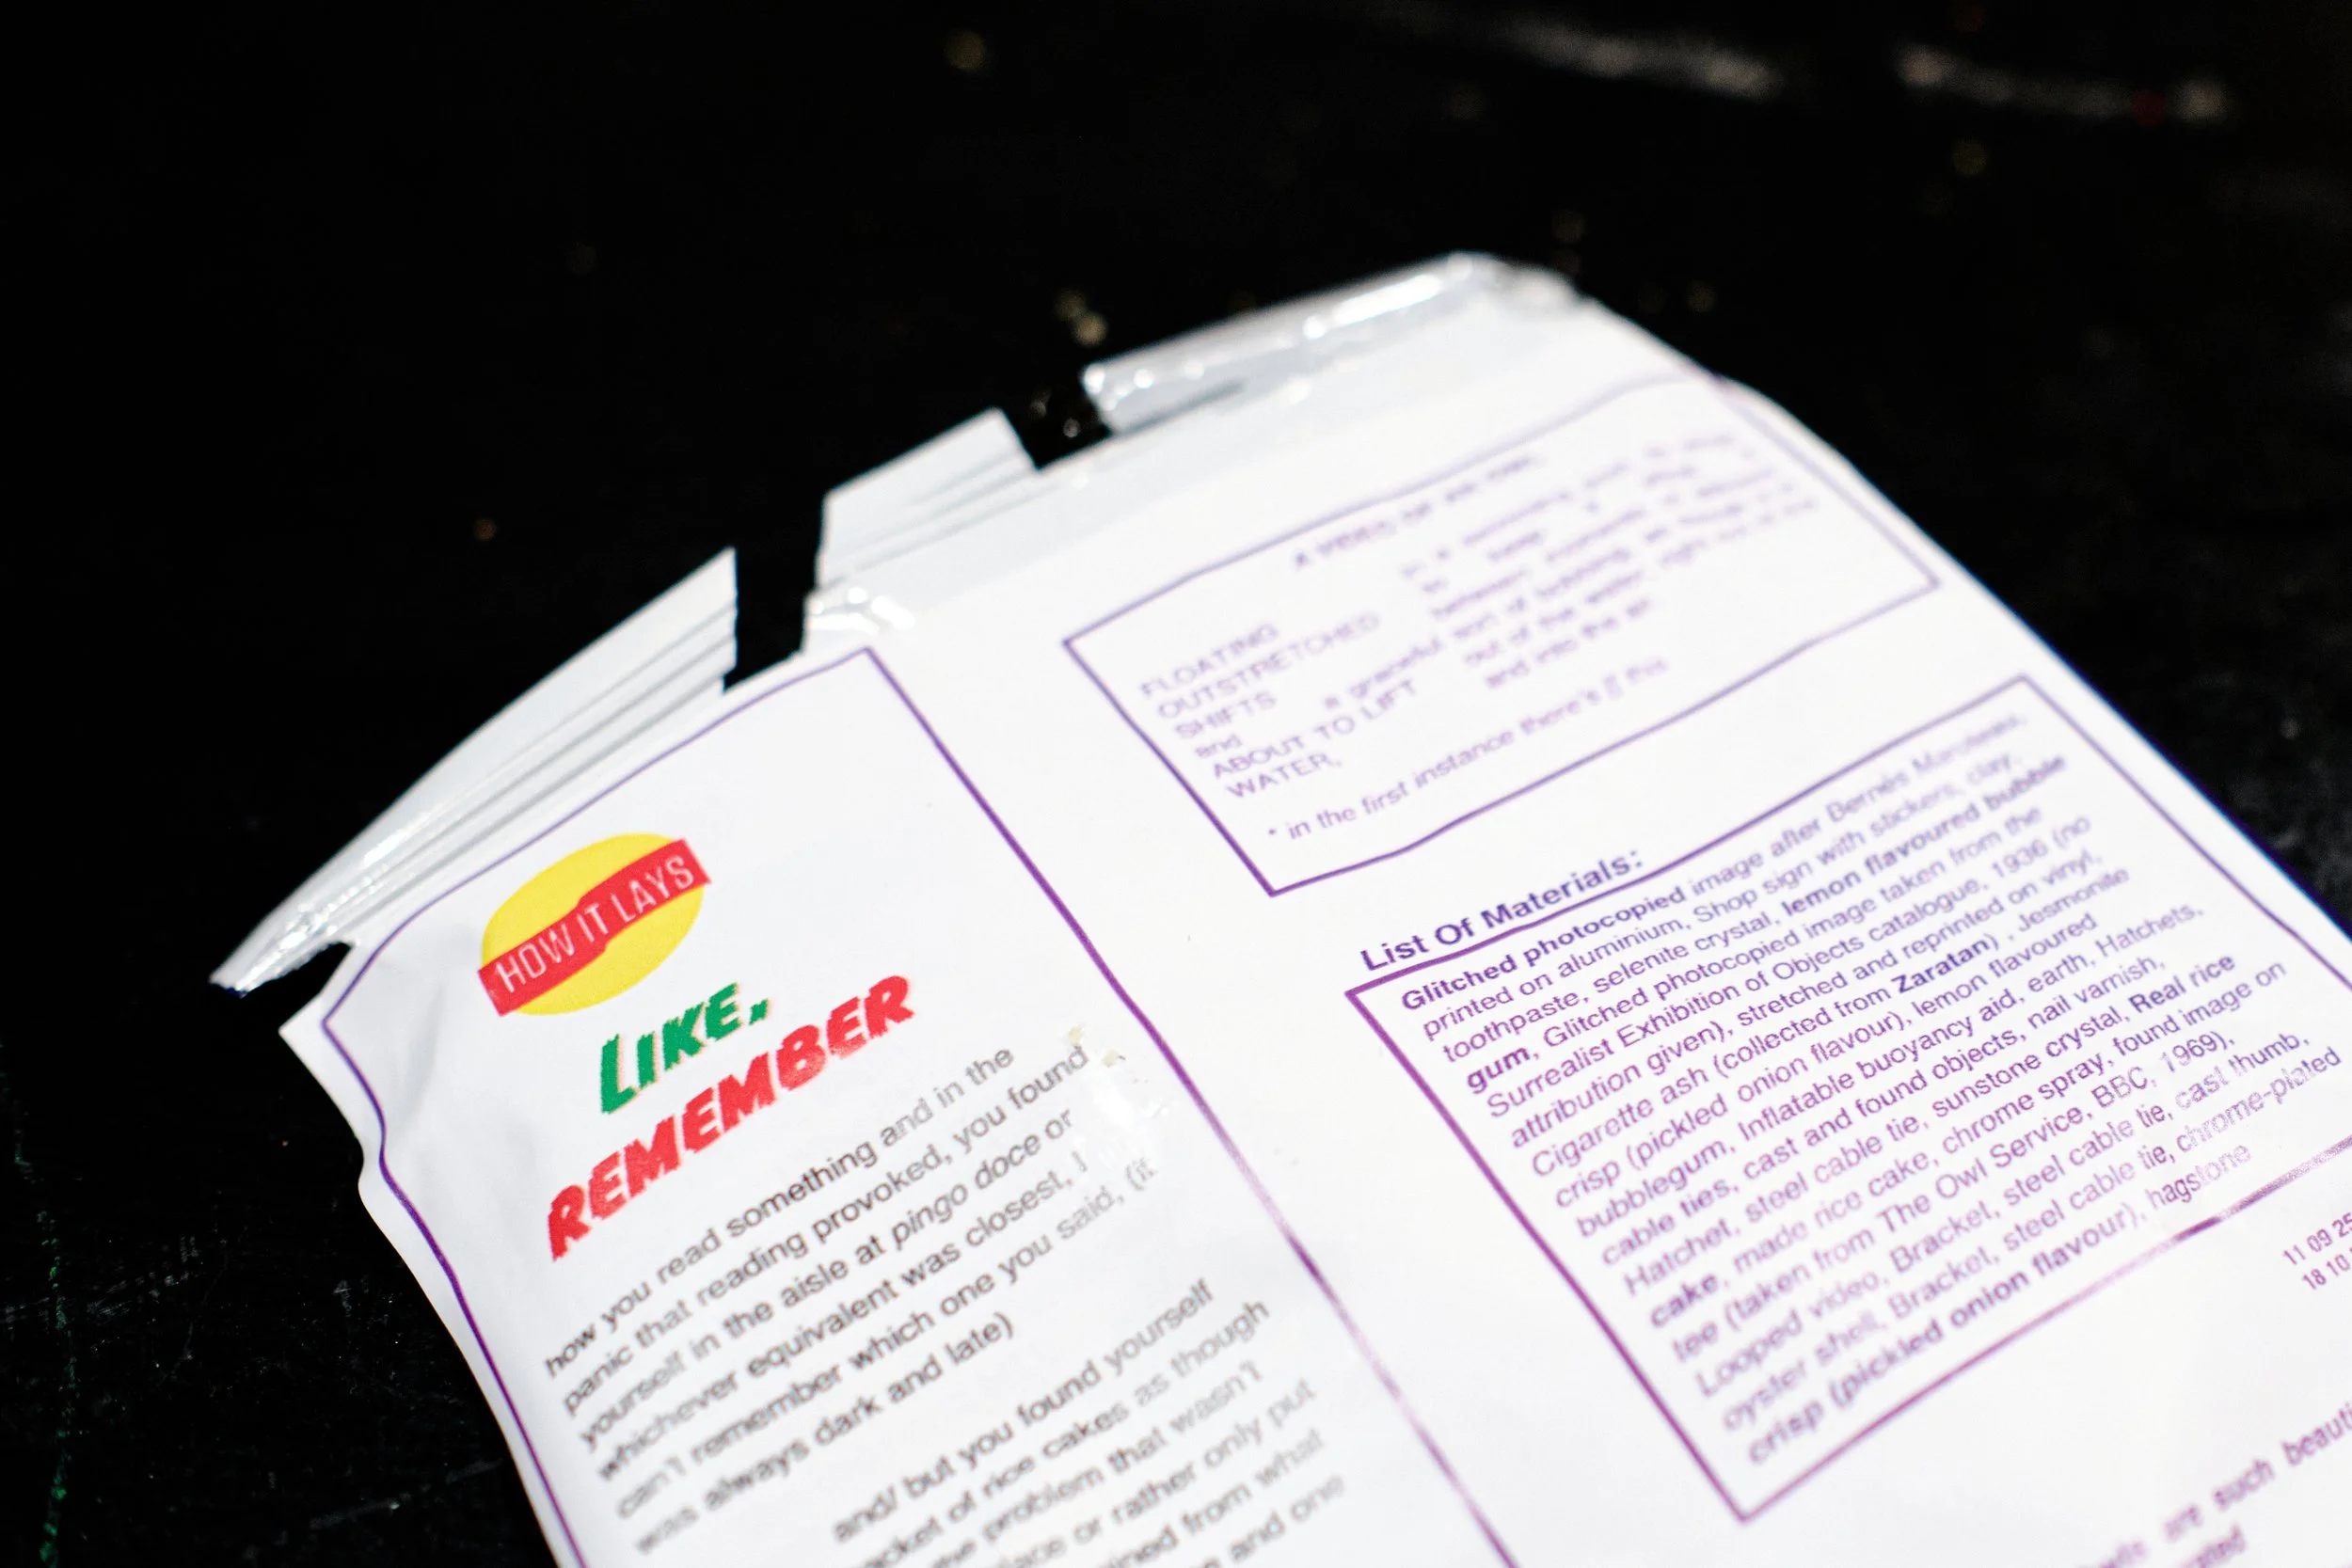 HOW IT LAYS
LIKE,
REMEMBER
how you read something and in the
panic that reading provoked, you found
yourself in the aisle at pingo doce or
whichever equivalent was closest, I
can't remember which one you said, (it
was always dark and late)
and/ but you found yourself
of rice cakes as though
problem that wasn't
or rather only put
from what
and one
FLOATING
OUTSTRETCHED
SHIFTS a graceful sort of
and out of the water, right
ABOUT TO LIFT and into the air
WATER,
* in the first instance there's // this
List Of Materials:
Glitched photocopied image after Bernès
printed on aluminium, Shop sign with stickers, clay,
toothpaste, selenite crystal, lemon flavoured bubble
gum, Glitched photocopied image taken from the
Surrealist Exhibition of Objects catalogue, 1936 (no
attribution given), stretched and reprinted on vinyl,
Cigarette ash (collected from Zaratan) , Jesmonite
crisp (pickled onion flavour), lemon flavoured
bubblegum, Inflatable buoyancy aid, earth, Hatchets,
cable ties, cast and found objects, nail varnish,
Hatchet, steel cable tie, sunstone crystal, Real rice
cake, made rice cake, chrome spray, found image on
tee (taken from The Owl Service, BBC, 1969),
Looped video, Bracket, steel cable tie, cast thumb,
oyster shell, Bracket, steel cable tie, chrome-plated
crisp (pickled onion flavour), hagstone
11 09 25
18 10
are such